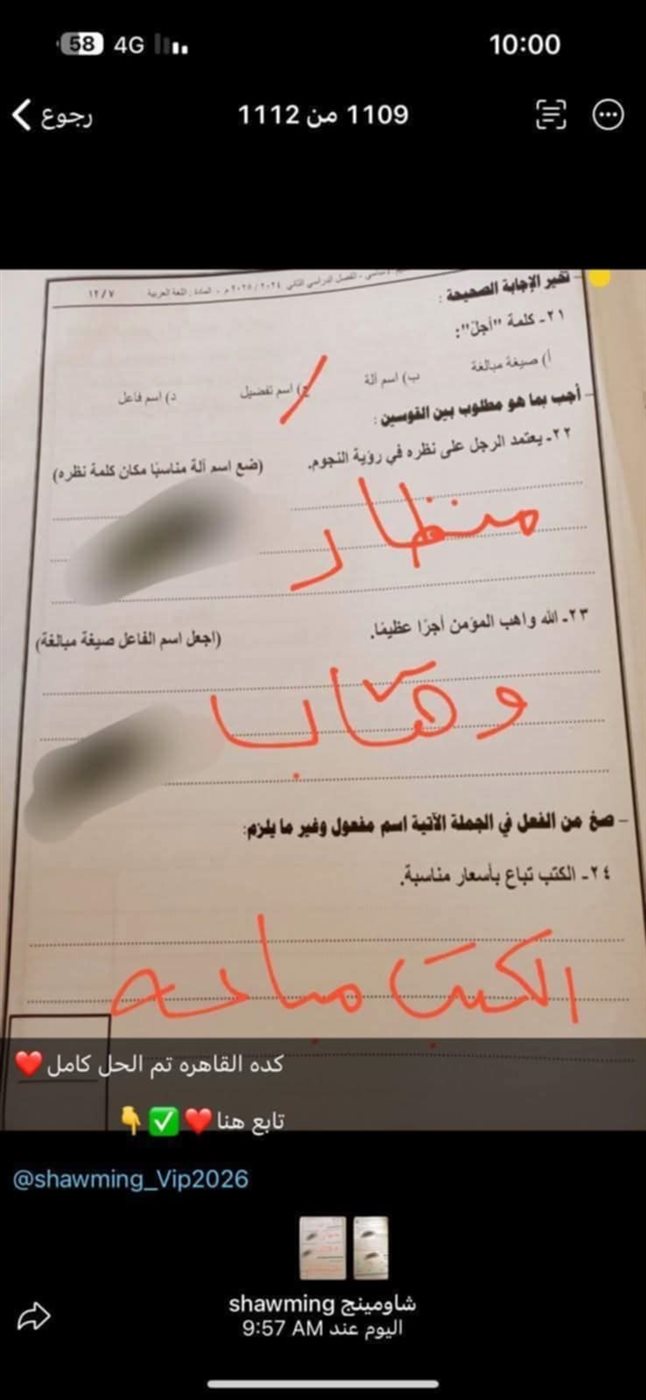 58 4G 10:00
رجوع 1109 من 1112
الفصل الدراسي الثاني ٢٠٢٤ / ٢٠٢٥ م - المادة: اللغة العربية ١٢/٧
- تخير الإجابة الصحيحة :
٢١- كلمة "أجلّ":
أ) صيغة مبالغة ب) اسم آلة ج) اسم تفضيل د) اسم فاعل
- أجب بما هو مطلوب بين القوسين :
٢٢- يعتمد الرجل على نظره في رؤية النجوم. (ضع اسم آلة مناسبًا مكان كلمة نظره)
منظار
٢٣- الله واهب المؤمن أجرًا عظيمًا. (اجعل اسم الفاعل صيغة مبالغة)
وهّاب
- صغ من الفعل في الجملة الآتية اسم مفعول وغير ما يلزم:
٢٤- الكتب تباع بأسعار مناسبة.
الكتب مباعه
كده القاهره تم الحل كامل❤️
تابع هنا❤️✅👇
@shawming_Vip2026
شاومينج shawming
اليوم عند 9:57 AM